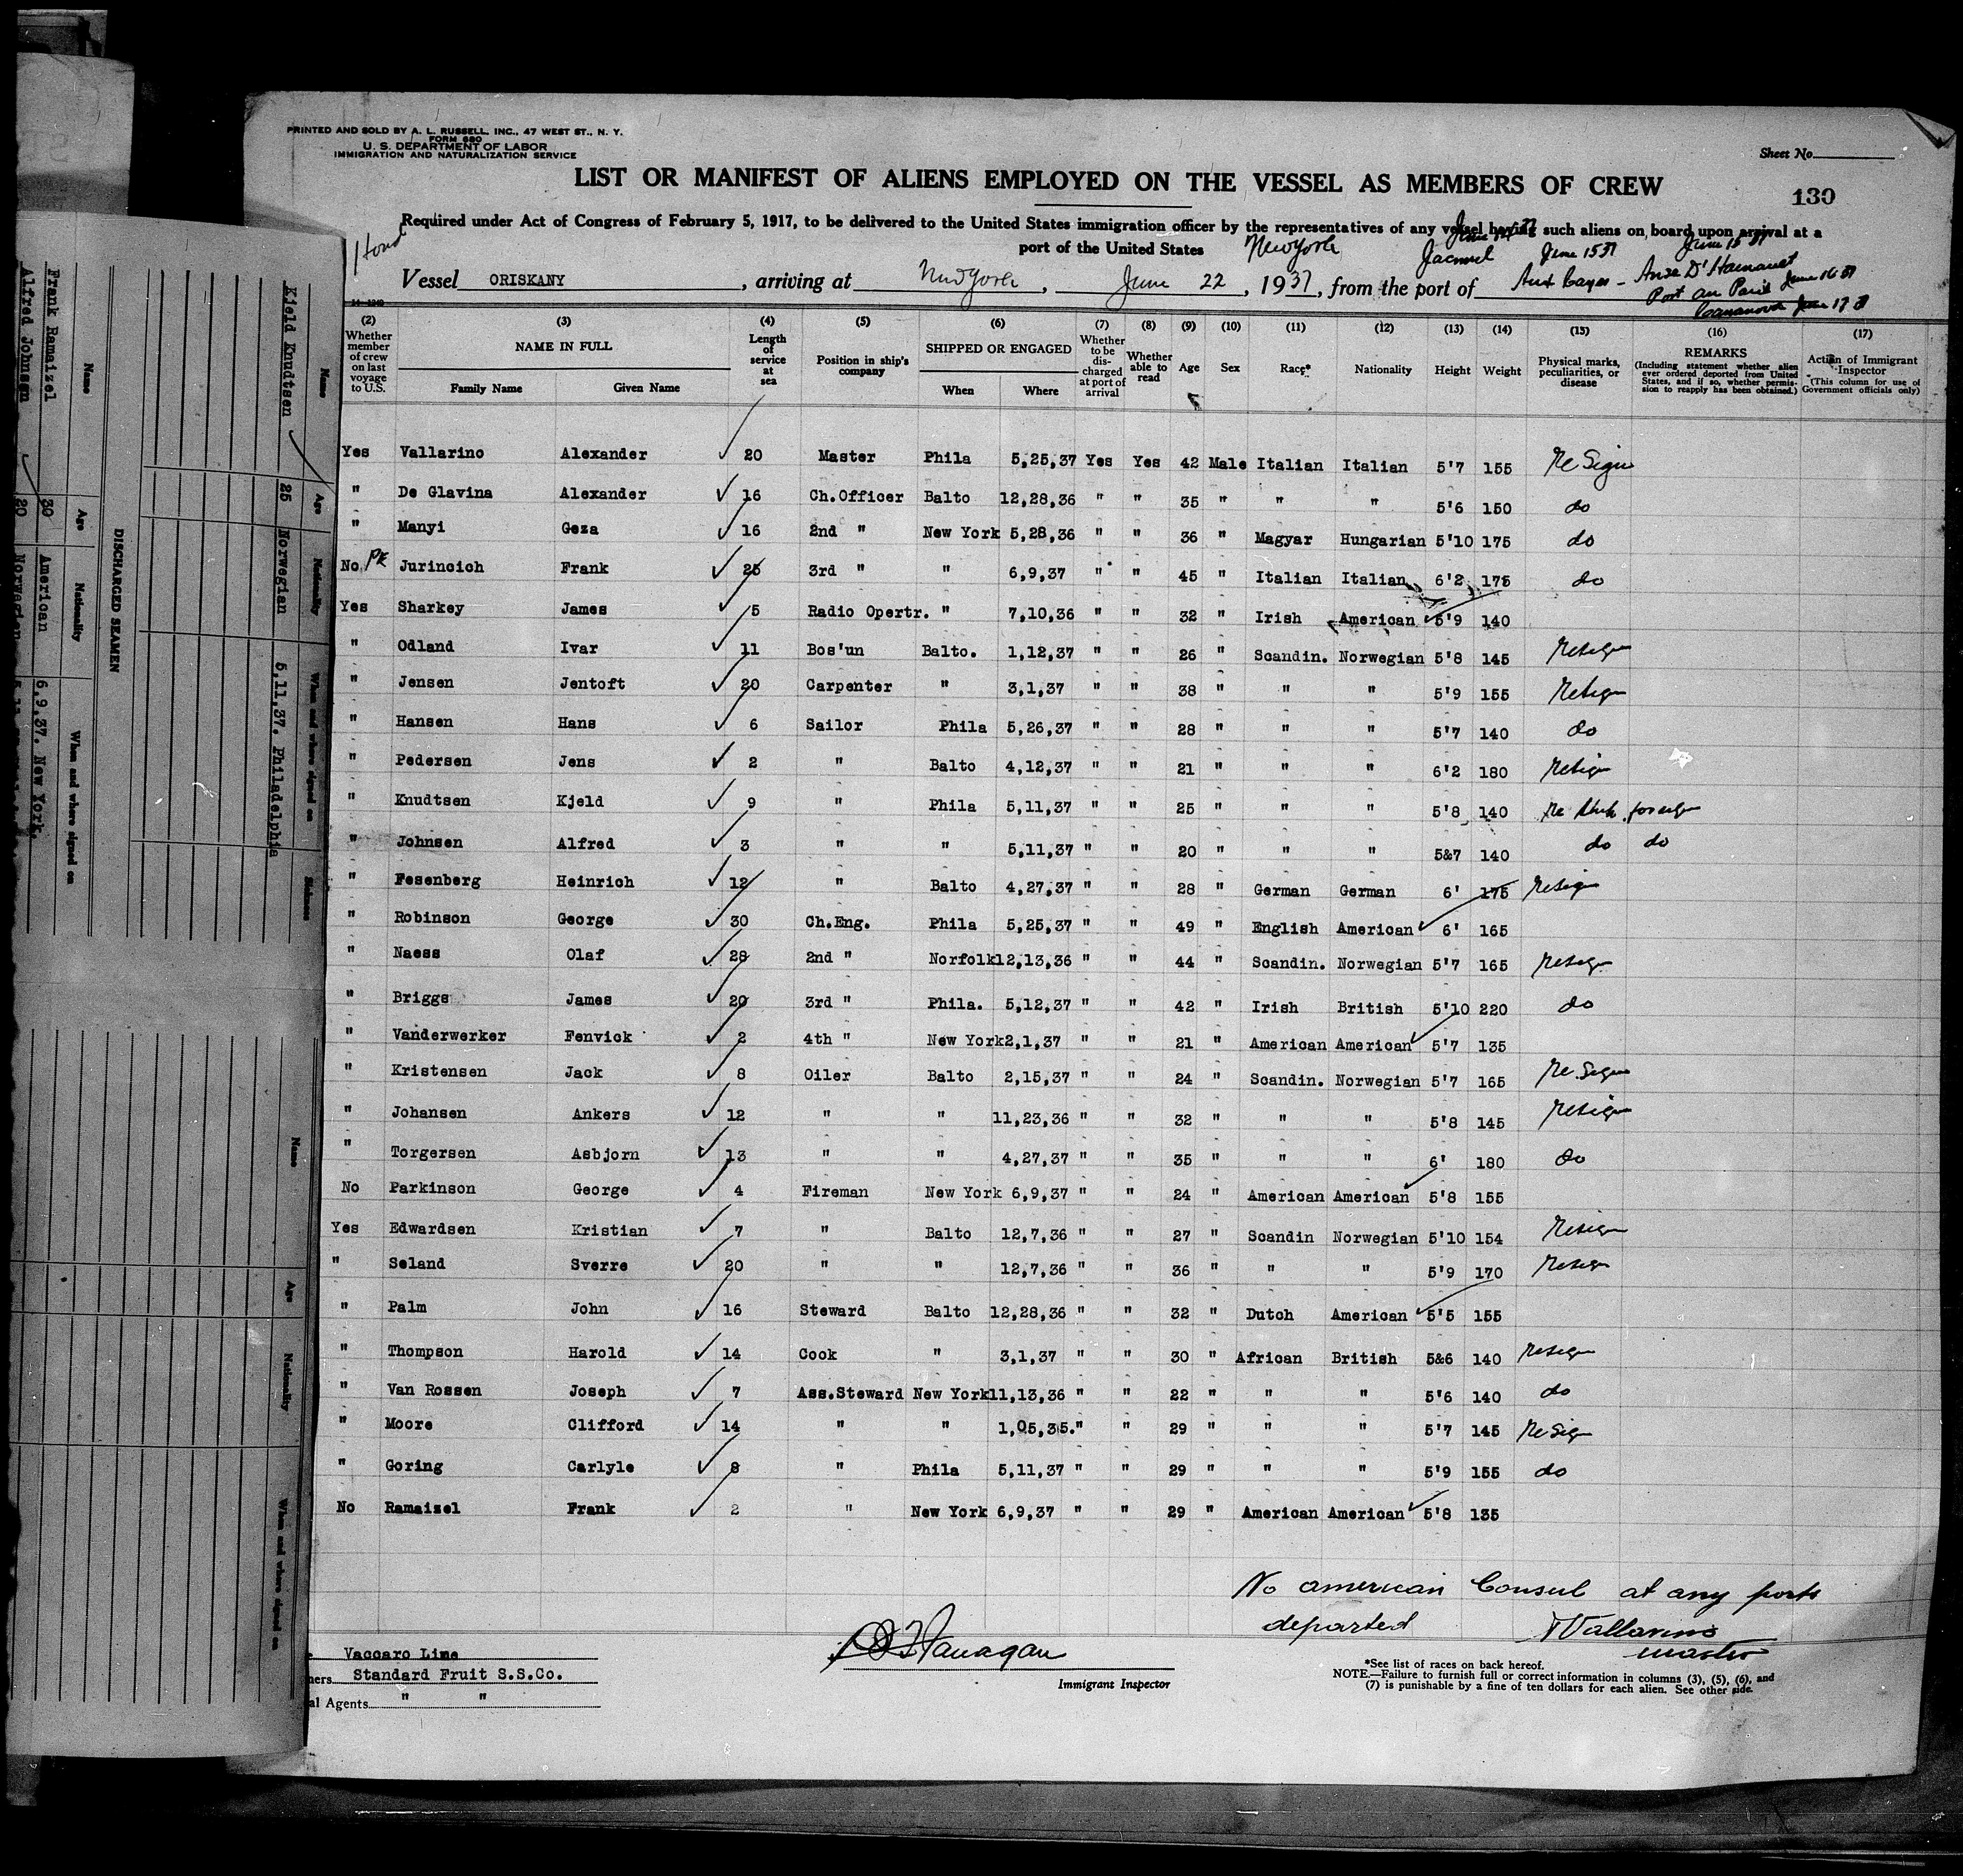 PRINTED AND SOLD BY A. L. RUSSELL, INC., 47 WEST ST., N. Y.
FORM 680
U. S. DEPARTMENT OF LABOR
IMMIGRATION AND NATURALIZATION SERVICE
Sheet No.
LIST OR MANIFEST OF ALIENS EMPLOYED ON THE VESSEL AS MEMBERS OF CREW
130
Required under Act of Congress of February 5, 1917, to be delivered to the United States immigration officer by the representatives of any vessel having such aliens on board upon arrival at a
port of the United States New York Jacmel June 15 37
Vessel ORISKANY, arriving at New York, June 22, 1937, from the port of Aux Cayes - Anse D' Hainault
Port au June 16 37
June 17 37
14—1240
(2) Whether member of crew on last voyage to U.S. (3) NAME IN FULL Family Name Given Name (4) Length of service at sea (5) Position in ship's company (6) SHIPPED OR ENGAGED When Where (7) Whether to be discharged at port of arrival (8) Whether able to read (9) Age (10) Sex (11) Race* (12) Nationality (13) Height (14) Weight (15) Physical marks, peculiarities, or disease (16) REMARKS (Including statement whether alien ever ordered deported from United States, and if so, whether permission to reapply has been obtained.) (17) Action of Immigrant Inspector (This column for use of Government officials only)
Yes Vallarino Alexander 20 Master Phila 5,25,37 Yes Yes 42 Male Italian Italian 5'7 155 Re Sign
" De Glavina Alexander 16 Ch.Officer Balto 12,28,36 " " 35 " " " 5'6 150 do
" Manyi Geza 16 2nd " New York 5,28,36 " " 36 " Magyar Hungarian 5'10 175 do
No Jurincich Frank 25 3rd " " 6,9,37 " " 45 " Italian Italian 6'2 175 do
Yes Sharkey James 5 Radio Opertr. " 7,10,36 " " 32 " Irish American 5'9 140
" Odland Ivar 11 Bos'un Balto. 1,12,37 " " 26 " Scandin. Norwegian 5'8 145 Resign
" Jensen Jentoft 20 Carpenter " 3,1,37 " " 38 " " " 5'9 155 Resign
" Hansen Hans 6 Sailor Phila 5,26,37 " " 28 " " " 5'7 140 do
" Pedersen Jens 2 " Balto 4,12,37 " " 21 " " " 6'2 180 Resign
" Knudtsen Kjeld 9 " Phila 5,11,37 " " 25 " " " 5'8 140
" Johnsen Alfred 3 " " 5,11,37 " " 20 " " " 5&7 140 do do
" Fesenberg Heinrich 12 " Balto 4,27,37 " " 28 " German German 6' 175 Resign
" Robinson George 30 Ch.Eng. Phila 5,25,37 " " 49 " English American 6' 165
" Naess Olaf 28 2nd " Norfolk 12,13,36 " " 44 " Scandin. Norwegian 5'7 165 Resign
" Briggs James 20 3rd " Phila. 5,12,37 " " 42 " Irish British 5'10 220 do
" Vanderwerker Fenvick 2 4th " New York 2,1,37 " " 21 " American American 5'7 135
" Kristensen Jack 8 Oiler Balto 2,15,37 " " 24 " Scandin. Norwegian 5'7 165 Re Sign
" Johansen Ankers 12 " " 11,23,36 " " 32 " " " 5'8 145 Resign
" Torgersen Asbjorn 13 " " 4,27,37 " " 35 " " " 6' 180 do
No Parkinson George 4 Fireman New York 6,9,37 " " 24 " American American 5'8 155
Yes Edwardsen Kristian 7 " Balto 12,7,36 " " 27 " Scandin Norwegian 5'10 154 Resign
" Seland Sverre 20 " " 12,7,36 " " 36 " " " 5'9 170 Resign
" Palm John 16 Steward Balto 12,28,36 " " 32 " Dutch American 5'5 155
" Thompson Harold 14 Cook " 3,1,37 " " 30 " African British 5&6 140 Resign
" Van Rossen Joseph 7 Ass.Steward New York 11,13,36 " " 22 " " " 5'6 140 do
" Moore Clifford 14 " " 1,05,35. " " 29 " " " 5'7 145 Re Sign
" Goring Carlyle 8 " Phila 5,11,37 " " 29 " " " 5'9 155 do
No Ramaizel Frank 2 " New York 6,9,37 " " 29 " American American 5'8 135
No american Consul at any ports
departed AVallarino
master
Flanagan
Immigrant Inspector
Vaccaro Line
ners Standard Fruit S.S.Co.
al Agents " "
*See list of races on back hereof.
NOTE.—Failure to furnish full or correct information in columns (3), (5), (6), and
(7) is punishable by a fine of ten dollars for each alien. See other side.
Name Age Nationality When and where signed on Sickness
Kjeld Knudtsen 25 Norwegian 5,11,37. Philadelphia
DISCHARGED SEAMEN
Name Age Nationality When and where signed on
Frank Ramaizel 30 American 6,9,37. New York.
Alfred Johnsen 20 Norwegian
Name Age Nationality When and where signed on